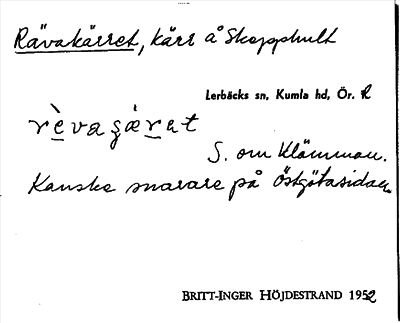 Rävakärret, kärr å Skopphult
Lerbäcks sn, Kumla hd, Ör. l
rèvaʂæ̀rat
S. om Klämman.
Kanske snarare på Östgötasidan.
BRITT-INGER HÖJDESTRAND 1952